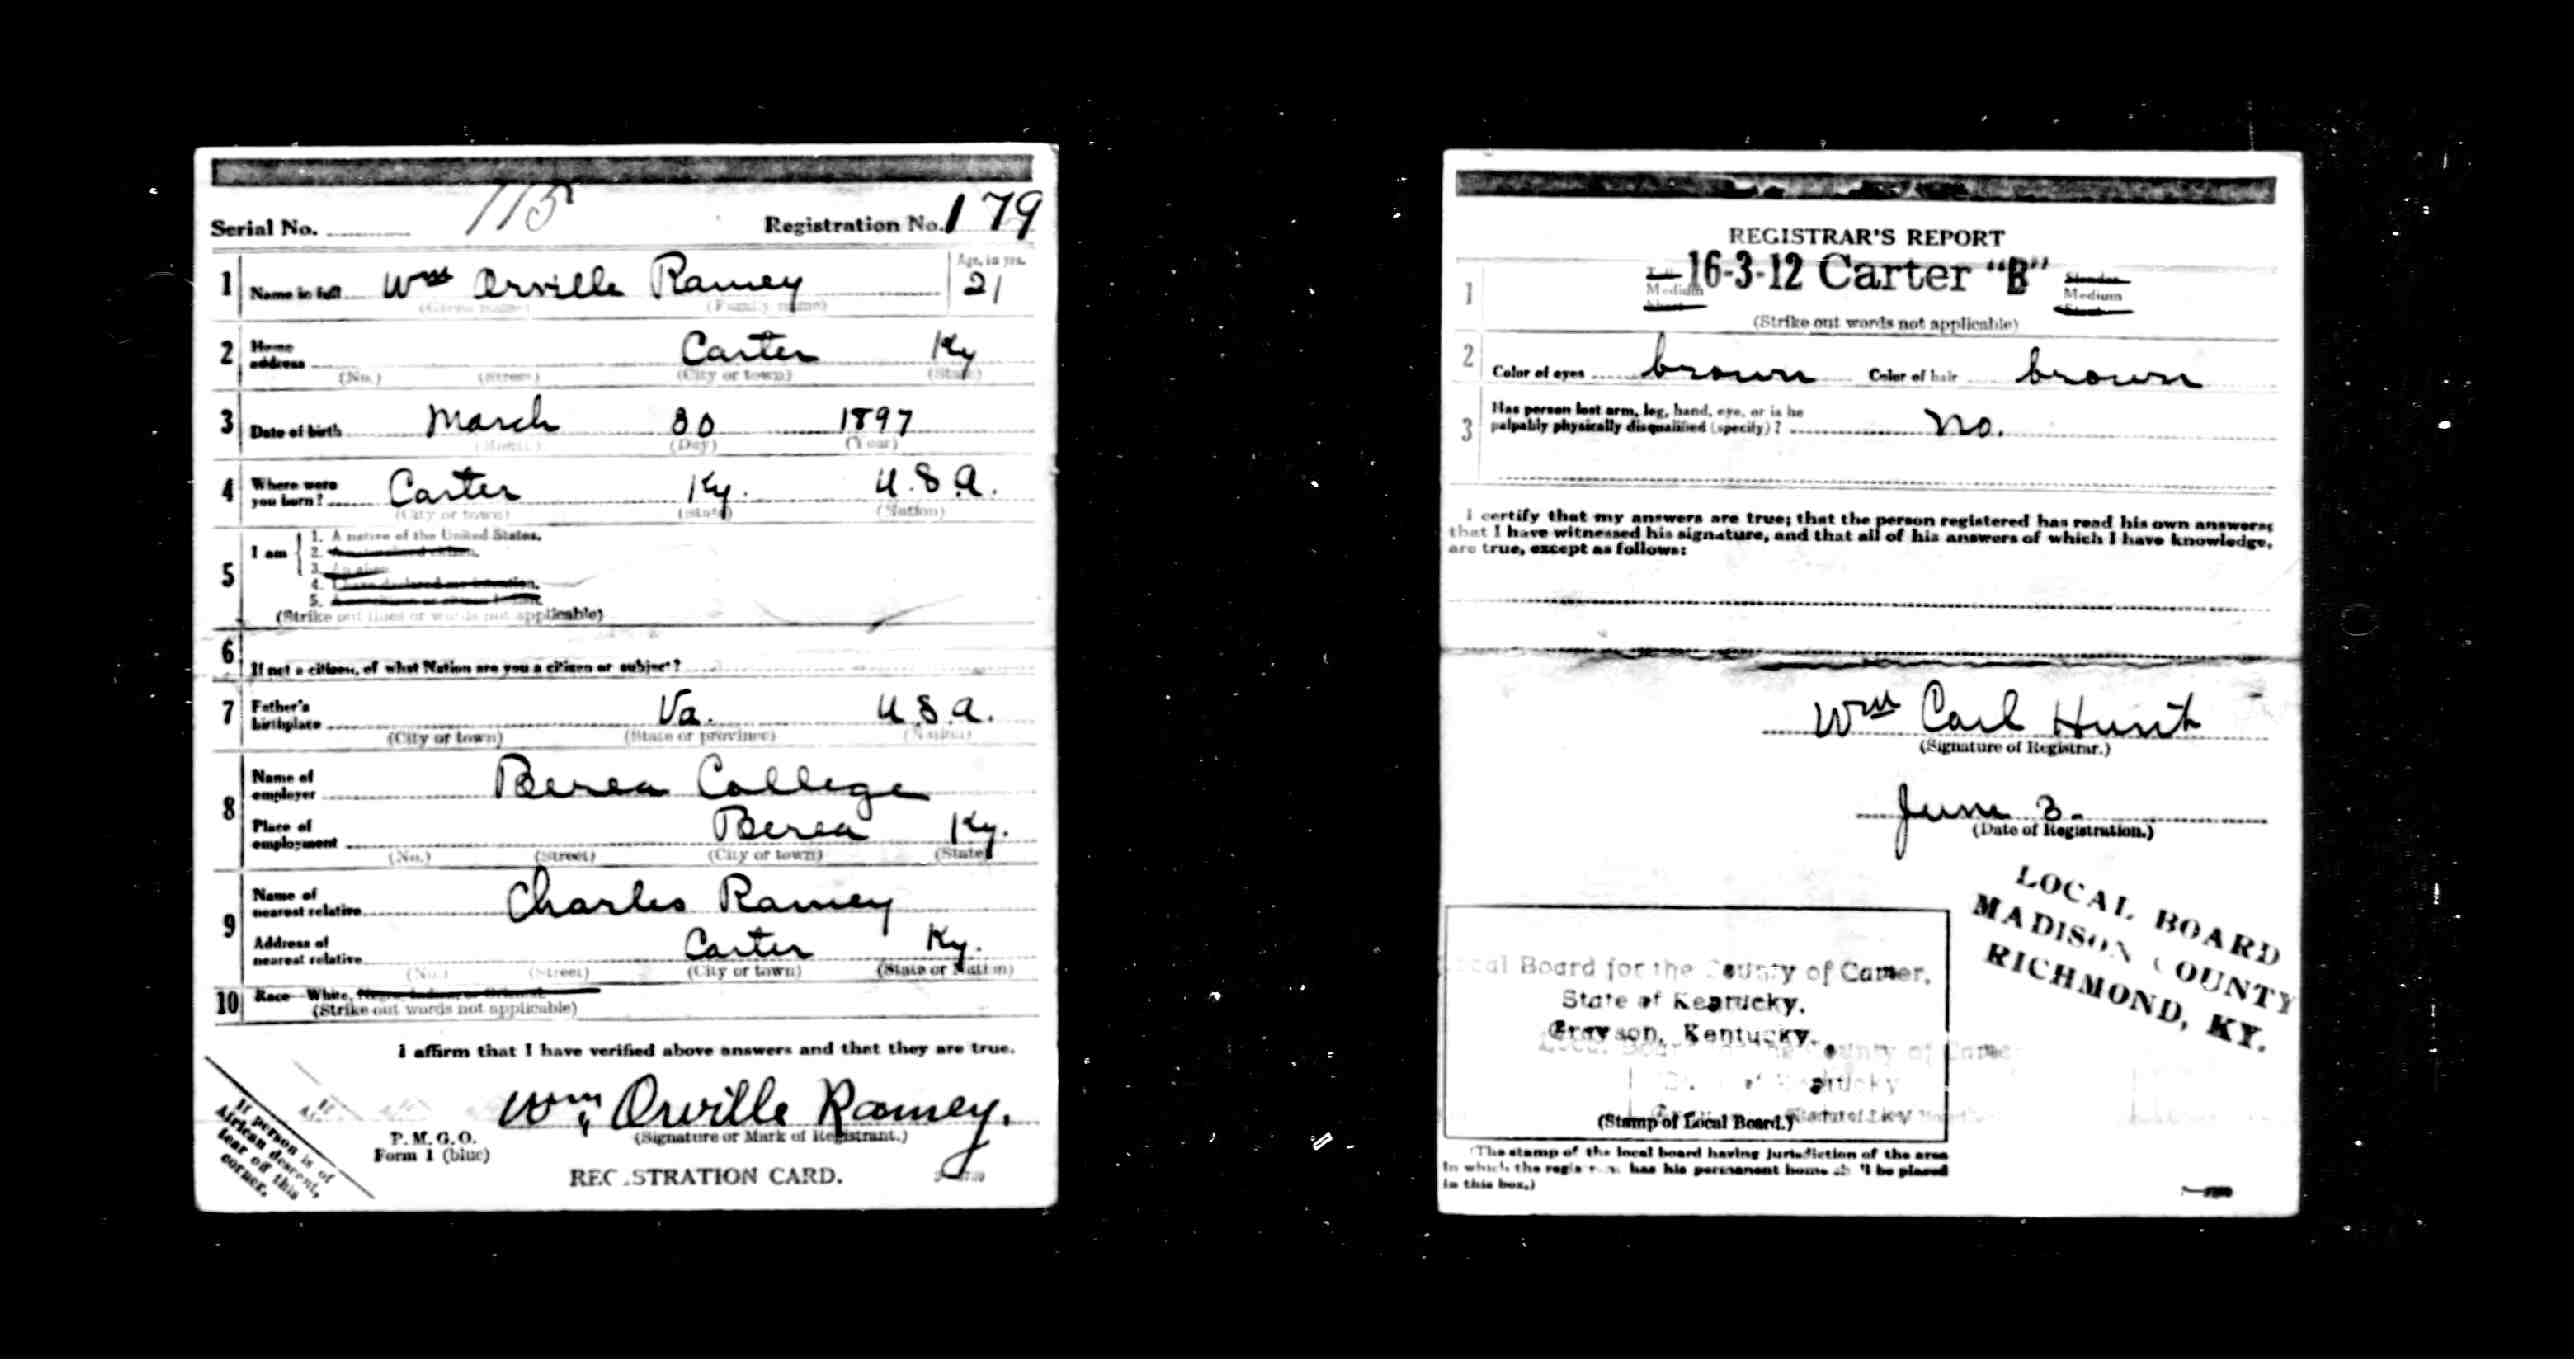 115
Serial No. Registration No. 179
1 Name in full Wm Orville Ramey Age, in yrs. 21
(Given name) (Family name)
2 Home address Carter Ky
(No.) (Street) (City or town) (State)
3 Date of birth March 30 1897
(Month) (Day) (Year)
4 Where were you born? Carter Ky. U.S.A.
(City or town) (State) (Nation)
5 I am
1. A native of the United States.
2.
3. An alien
4. I have declared my intention.
5.
(Strike out lines or words not applicable)
6 If not a citizen, of what Nation are you a citizen or subject?
7 Father's birthplace Va. U.S.A.
(City or town) (State or province) (Nation)
8 Name of employer Berea College
Place of employment Berea Ky.
(No.) (Street) (City or town) (State)
9 Name of nearest relative Charles Ramey
Address of nearest relative Carter Ky.
(No.) (Street) (City or town) (State or Nation)
10 Race—White, Negro, Indian, or Oriental.
(Strike out words not applicable)
I affirm that I have verified above answers and that they are true.
Wm. Orville Ramey.
(Signature or Mark of Registrant.)
P. M. G. O.
Form 1 (blue)
REGISTRATION CARD.
If person is of
African descent,
tear off this
corner.
REGISTRAR'S REPORT
16-3-12 Carter "B"
1 Medium Slender Medium
(Strike out words not applicable)
2 Color of eyes brown Color of hair brown
3 Has person lost arm, leg, hand, eye, or is he
palpably physically disqualified (specify)? No.
I certify that my answers are true; that the person registered has read his own answers;
that I have witnessed his signature, and that all of his answers of which I have knowledge,
are true, except as follows:
Wm Carl Hunt
(Signature of Registrar.)
June 3.
(Date of Registration.)
LOCAL BOARD
MADISON COUNTY
RICHMOND, KY.
Local Board for the County of Carter,
State of Kentucky.
Grayson, Kentucky.
(Stamp of Local Board.)
(The stamp of the local board having jurisdiction of the area
in which the registrant has his permanent home shall be placed
in this box.)